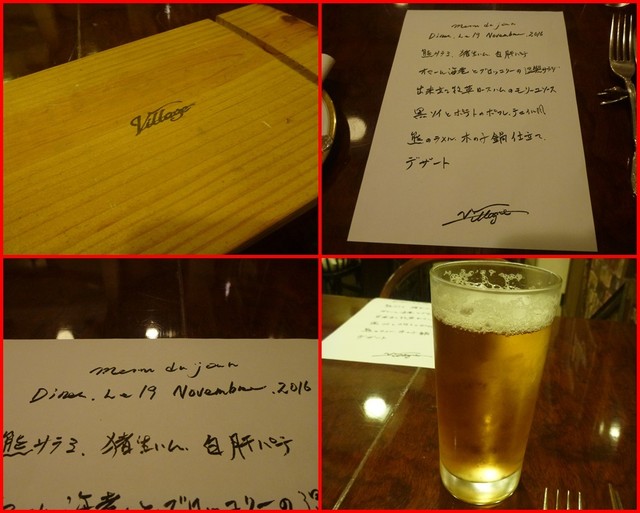 Village
menu du jour
Diner. Le 19 November 2016
熊サラミ、猪生ハム、白肝パテ
海老とブロッコリーの温製サラダ
出来立て牧草ロースハムのモリーユソース
黒ソイとポテトの
熊の 木の子鍋仕立て
デザート
Village
menu du jour
Diner. Le 19 November. 2016
熊サラミ、猪生ハム、白肝パテ
海老とブロッコリーの温